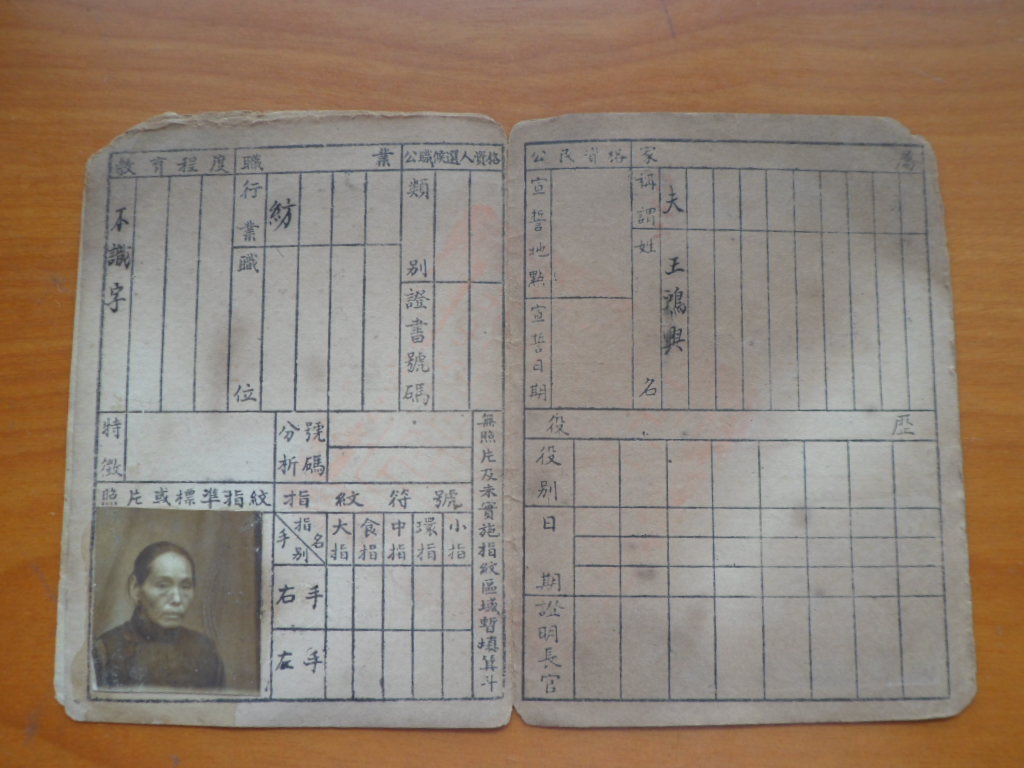 教育程度
不識字
職業
行業
紡
職位
公職候選人資格
類別
證書號碼
特徵
分析號碼
照片或標準指紋
指紋符號
指名
手別
大指
食指
中指
環指
小指
右手
左手
無照片及未實施指紋區域暫填箕斗
公民資格
宣誓地點
宣誓日期
家屬
稱謂
夫
姓名
王鴻興
役歷
役別
日期
證明長官